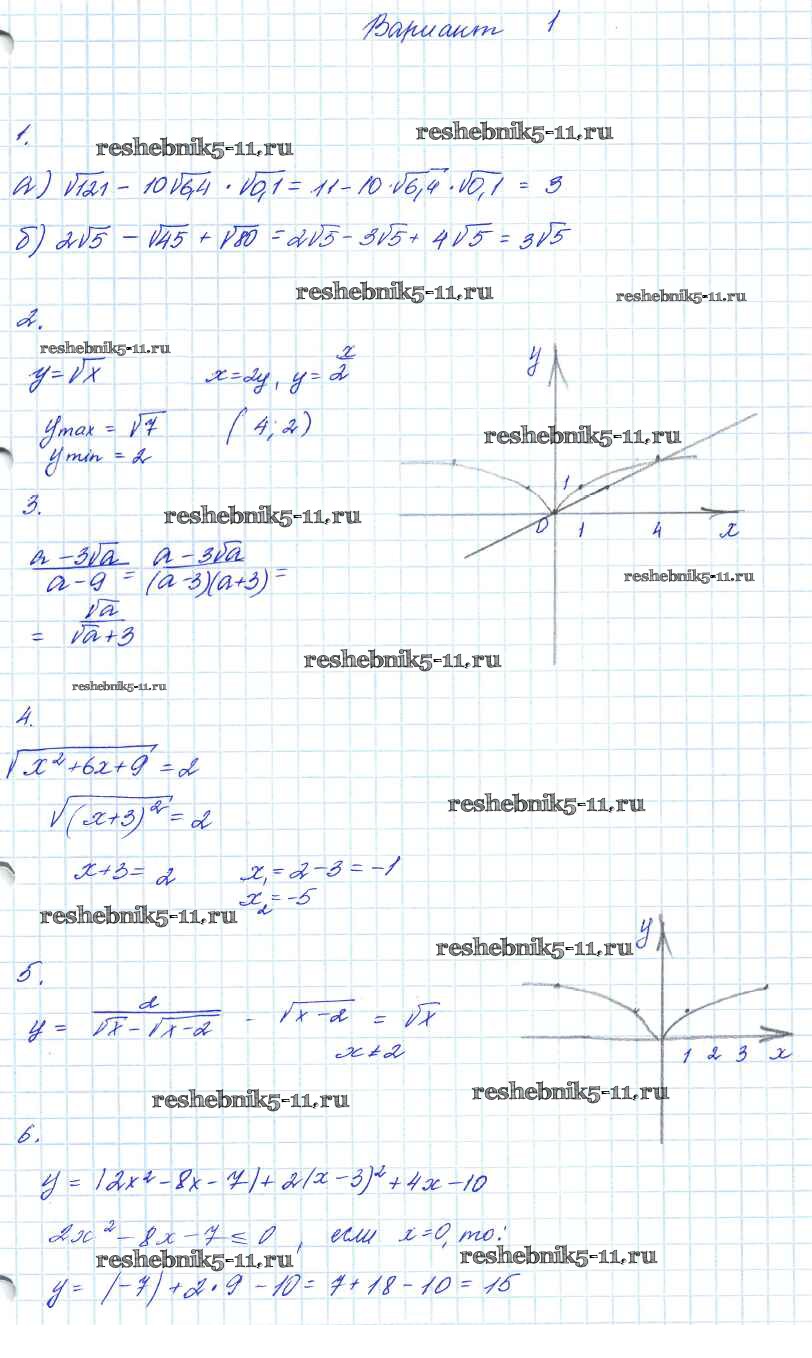 Вариант 1
1.
reshebnik5-11.ru reshebnik5-11.ru
а) √121 - 10√6,4 · √0,1 = 11 - 10·√6,4·√0,1 = 3
б) 2√5 - √45 + √80 = 2√5 - 3√5 + 4√5 = 3√5
reshebnik5-11.ru reshebnik5-11.ru
2.
reshebnik5-11.ru
y = √x x = 2y, y = x/2
y max = √7 (4; 2)
y min = 2
y
reshebnik5-11.ru
1
0 1 4 x
3.
reshebnik5-11.ru
(a - 3√a)/(a - 9) = (a - 3√a)/((a - 3)(a + 3)) =
= √a/(√a + 3)
reshebnik5-11.ru
reshebnik5-11.ru
reshebnik5-11.ru
4.
√(x² + 6x + 9) = 2
√((x + 3)²) = 2
reshebnik5-11.ru
x + 3 = 2 x₁ = 2 - 3 = -1
x₂ = -5
reshebnik5-11.ru
reshebnik5-11.ru
y
1 2 3 x
5.
y = 2/(√x - √(x-2)) - √(x-2) = √x
x ≠ 2
reshebnik5-11.ru reshebnik5-11.ru
6.
y = |2x² - 8x - 7| + 2(x - 3)² + 4x - 10
2x² - 8x - 7 ≤ 0, если x = 0, то:
reshebnik5-11.ru reshebnik5-11.ru
y = |-7| + 2·9 - 10 = 7 + 18 - 10 = 15